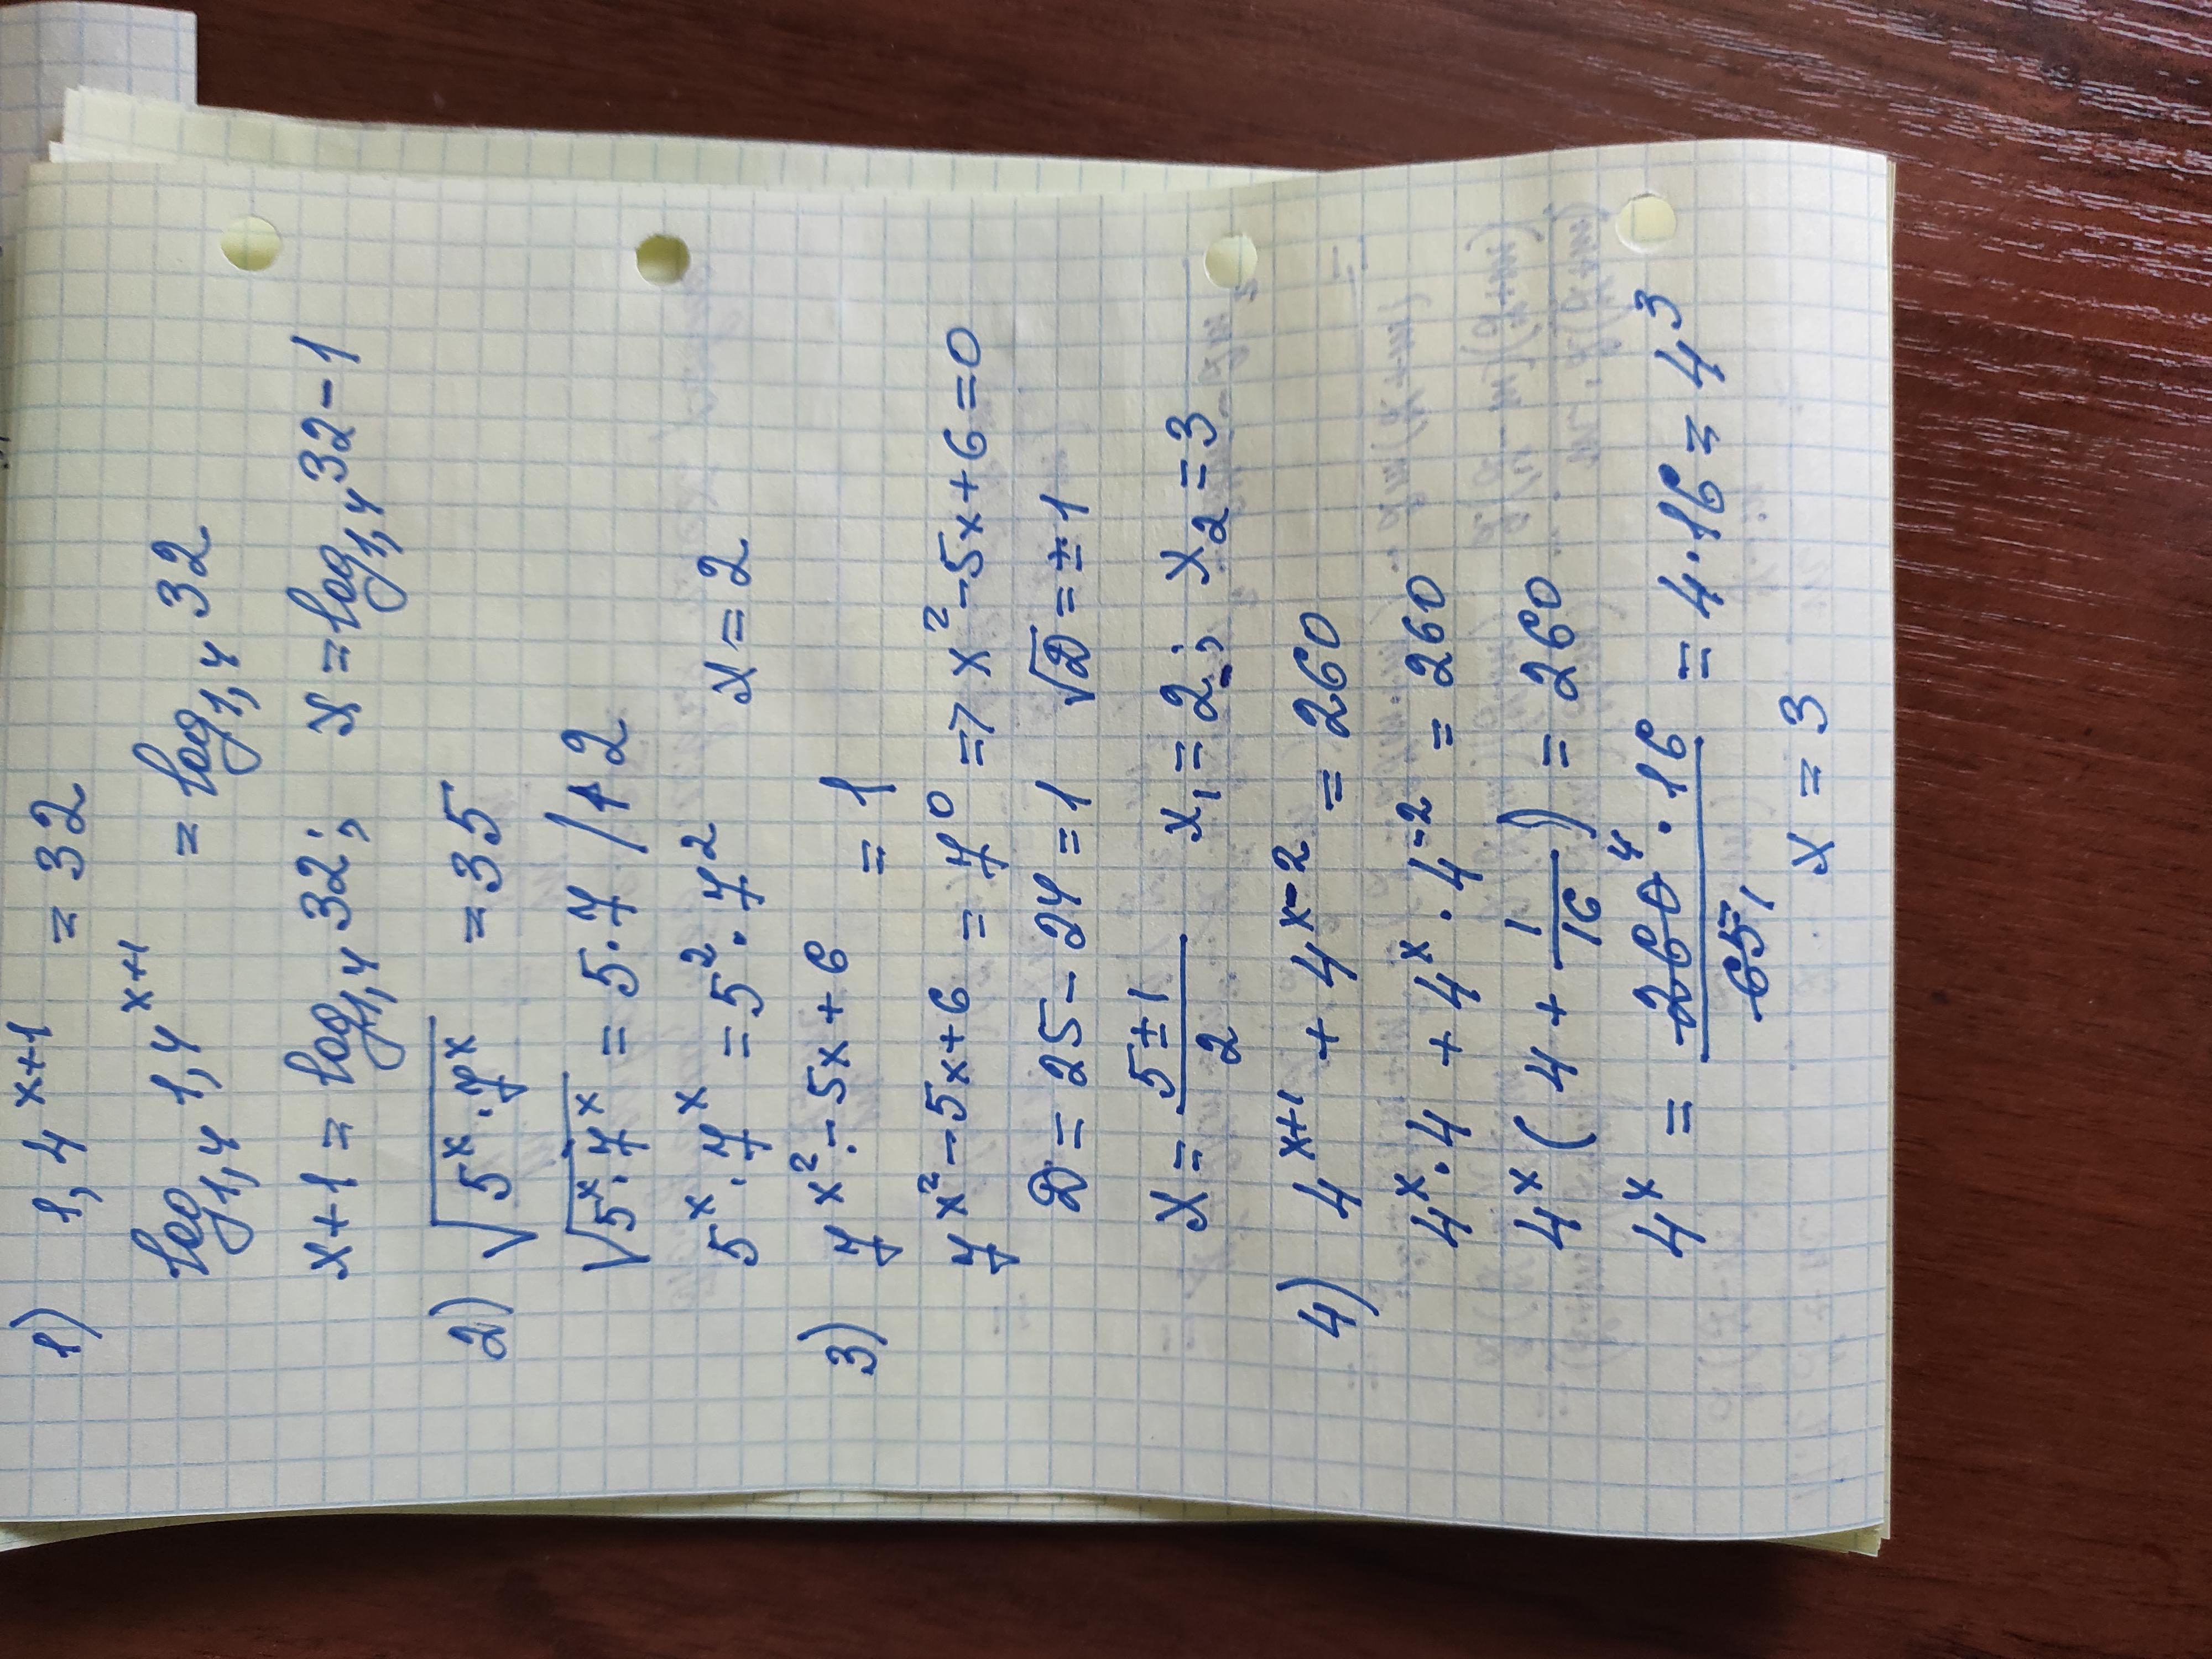 1) 1,4^(x+1) = 32
log_(1,4) 1,4^(x+1) = log_(1,4) 32
x+1 = log_(1,4) 32; x = log_(1,4) 32 - 1
2) √(5^x · 7^x) = 35
√(5^x · 7^x) = 5·7 /↑2
5^x · 7^x = 5² · 7² x = 2
3) 7^(x²-5x+6) = 1
7^(x²-5x+6) = 7^0 => x²-5x+6=0
D = 25-24 = 1 √D = ±1
x = (5±1)/2 x₁ = 2; x₂ = 3
4) 4^(x+1) + 4^(x-2) = 260
4^x · 4 + 4^x · 4^(-2) = 260
4^x (4 + 1/16) = 260
4^x = (260 4 · 16)/(65 1) = 4·16 = 4³
x = 3